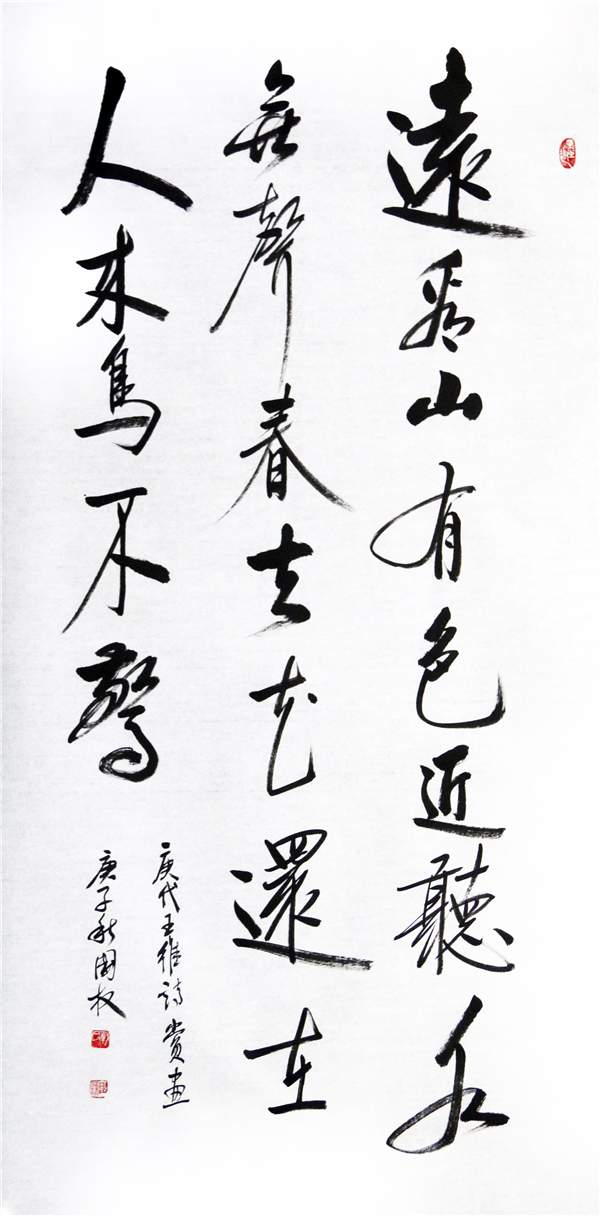 遠看山有色近聽水
無聲春去花還在
人來鳥不驚
唐代王維詩賞畫
庚子秋國权